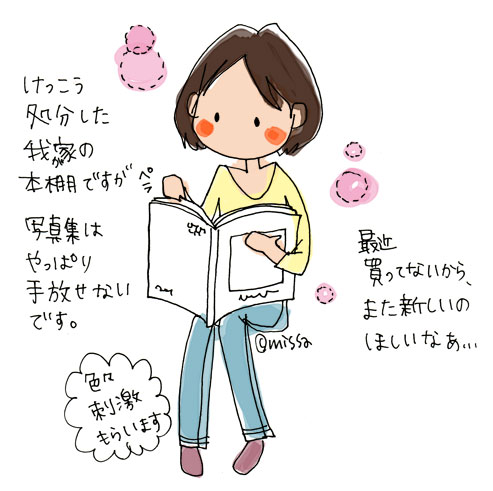 けっこう
処分した
我家の
本棚ですが
写真集は
やっぱり
手放せない
です。
ペラ
最近
買ってないから、
また新しいの
ほしいなぁ…
@missa
色々
刺激
もらいます